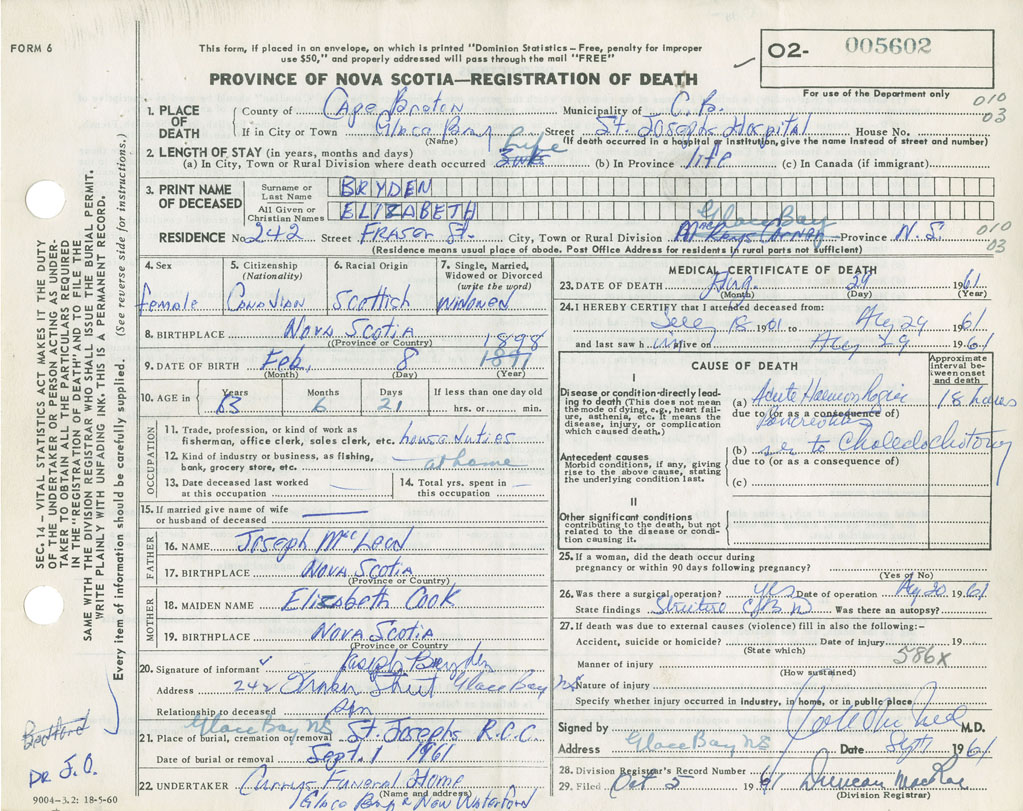 FORM 6
This form, if placed in an envelope, on which is printed "Dominion Statistics – Free, penalty for improper
use $50," and properly addressed will pass through the mail "FREE"
PROVINCE OF NOVA SCOTIA—REGISTRATION OF DEATH
O2- 005602
For use of the Department only
010
03
1. PLACE OF DEATH
County of Cape Breton Municipality of C.B.
If in City or Town Glace Bay Street St. Josephs Hospital House No.
(Name) (If death occurred in a hospital or institution, give the name instead of street and number)
2. LENGTH OF STAY (in years, months and days)
(a) In City, Town or Rural Division where death occurred Life (b) In Province life (c) In Canada (if immigrant)
3. PRINT NAME OF DECEASED
Surname or Last Name BRYDEN
All Given or Christian Names ELIZABETH
Glace Bay
RESIDENCE No. 242 Street FRASER St. City, Town or Rural Division Province N.S.
010
03
(Residence means usual place of abode. Post Office Address for residents in rural parts not sufficient)
4. Sex Female
5. Citizenship (Nationality) CANADIAN
6. Racial Origin Scottish
7. Single, Married, Widowed or Divorced (write the word) WIDOWED
8. BIRTHPLACE Nova Scotia
(Province or Country)
9. DATE OF BIRTH Feb. 8 1898 1897
(Month) (Day) (Year)
10. AGE in Years 63 Months 6 Days 21 If less than one day old hrs. or min.
OCCUPATION
11. Trade, profession, or kind of work as fisherman, office clerk, sales clerk, etc. house duties
12. Kind of industry or business, as fishing, bank, grocery store, etc. at home
13. Date deceased last worked at this occupation
14. Total yrs. spent in this occupation
15. If married give name of wife or husband of deceased
FATHER
16. NAME Joseph McLeod
17. BIRTHPLACE Nova Scotia
(Province or Country)
MOTHER
18. MAIDEN NAME Elizabeth Cook
19. BIRTHPLACE Nova Scotia
(Province or Country
20. Signature of informant Joseph Bryden
Address 242 Street Glace Bay NS
Relationship to deceased son
Glace Bay NS
21. Place of burial, cremation or removal St. Josephs R.C.C.
Date of burial or removal Sept. 1 1961
22. UNDERTAKER Currys Funeral Home
(Name and address)
Glace Bay & New Waterford
MEDICAL CERTIFICATE OF DEATH
23. DATE OF DEATH Aug. 29 1961
(Month) (Day) (Year)
24. I HEREBY CERTIFY that I attended deceased from:
18 1961 to Aug 29 1961
and last saw h alive on Aug 29 1961
CAUSE OF DEATH
Approximate interval between onset and death
I
Disease or condition directly leading to death (This does not mean the mode of dying, e.g., heart failure, asthenia, etc. It means the disease, injury, or complication which caused death.)
(a) Acute Haemorrhagic 18 hours
due to (or as a consequence of)
Pancreatitis
(b) to Choledochotomy
Antecedent causes
Morbid conditions, if any, giving rise to the above cause, stating the underlying condition last.
due to (or as a consequence of)
(c)
II
Other significant conditions
contributing to the death, but not related to the disease or condition causing it.
25. If a woman, did the death occur during pregnancy or within 90 days following pregnancy?
(Yes or No)
26. Was there a surgical operation? Yes Date of operation Aug 20 1961
State findings Stricture C.B.D. Was there an autopsy?
27. If death was due to external causes (violence) fill in also the following:–
Accident, suicide or homicide? Date of injury 19
(State which)
586X
Manner of injury
(How sustained)
Nature of injury
Specify whether injury occurred in industry, in home, or in public place.
Signed by M.D.
Address Glace Bay NS Date Sept 1 1961
28. Division Registrar's Record Number
29. Filed Oct 5 1961 Duncan MacRae
(Division Registrar)
SEC. 14 – VITAL STATISTICS ACT MAKES IT THE DUTY
OF THE UNDERTAKER OR PERSON ACTING AS UNDERTAKER
TO OBTAIN ALL THE PARTICULARS REQUIRED
IN THE "REGISTRATION OF DEATH" AND TO FILE THE
SAME WITH THE DIVISION REGISTRAR WHO SHALL ISSUE THE BURIAL PERMIT.
WRITE PLAINLY WITH UNFADING INK. THIS IS A PERMANENT RECORD.
Every item of information should be carefully supplied. (See reverse side for instructions.)
Bedford
Dr J.O.
9004-3.2: 18-5-60